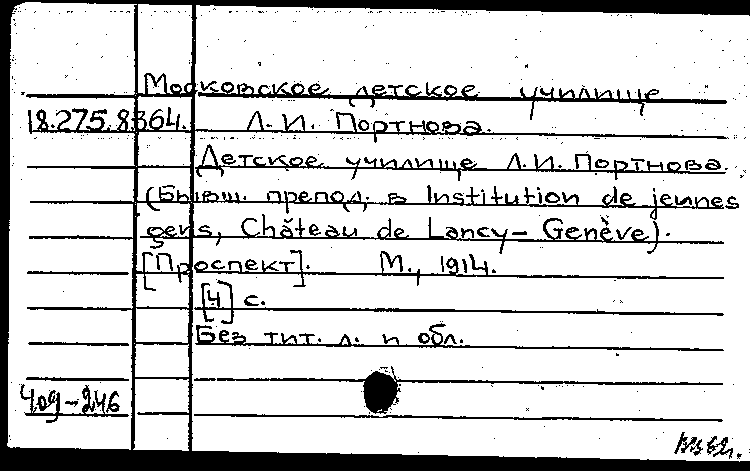 Московское детское училище
18.275.8364. Л. И. Портнова.
Детское училище Л.И. Портнова.
(Бывш. препод. в Institution de jeunes
gens, Château de Lancy - Genève).
[Проспект]. М., 1914.
[4] с.
Без тит. л. и обл.